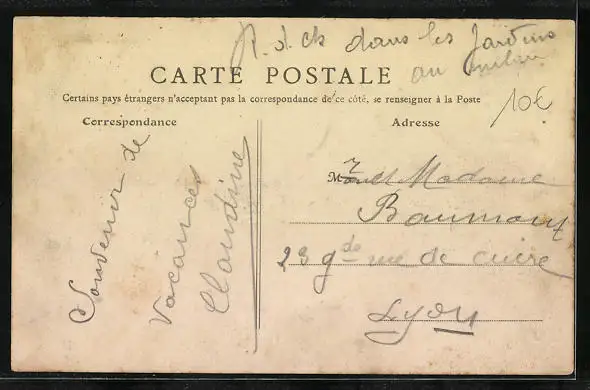 R. d. ch dans les Jardins
au milieu
CARTE POSTALE
10€
Certains pays étrangers n'acceptant pas la correspondance de ce côté, se renseigner à la Poste
Correspondance
Souvenir de
vacances
Claudine
Adresse
M et Madame
Baumont
23 gde rue de cuire
Lyon